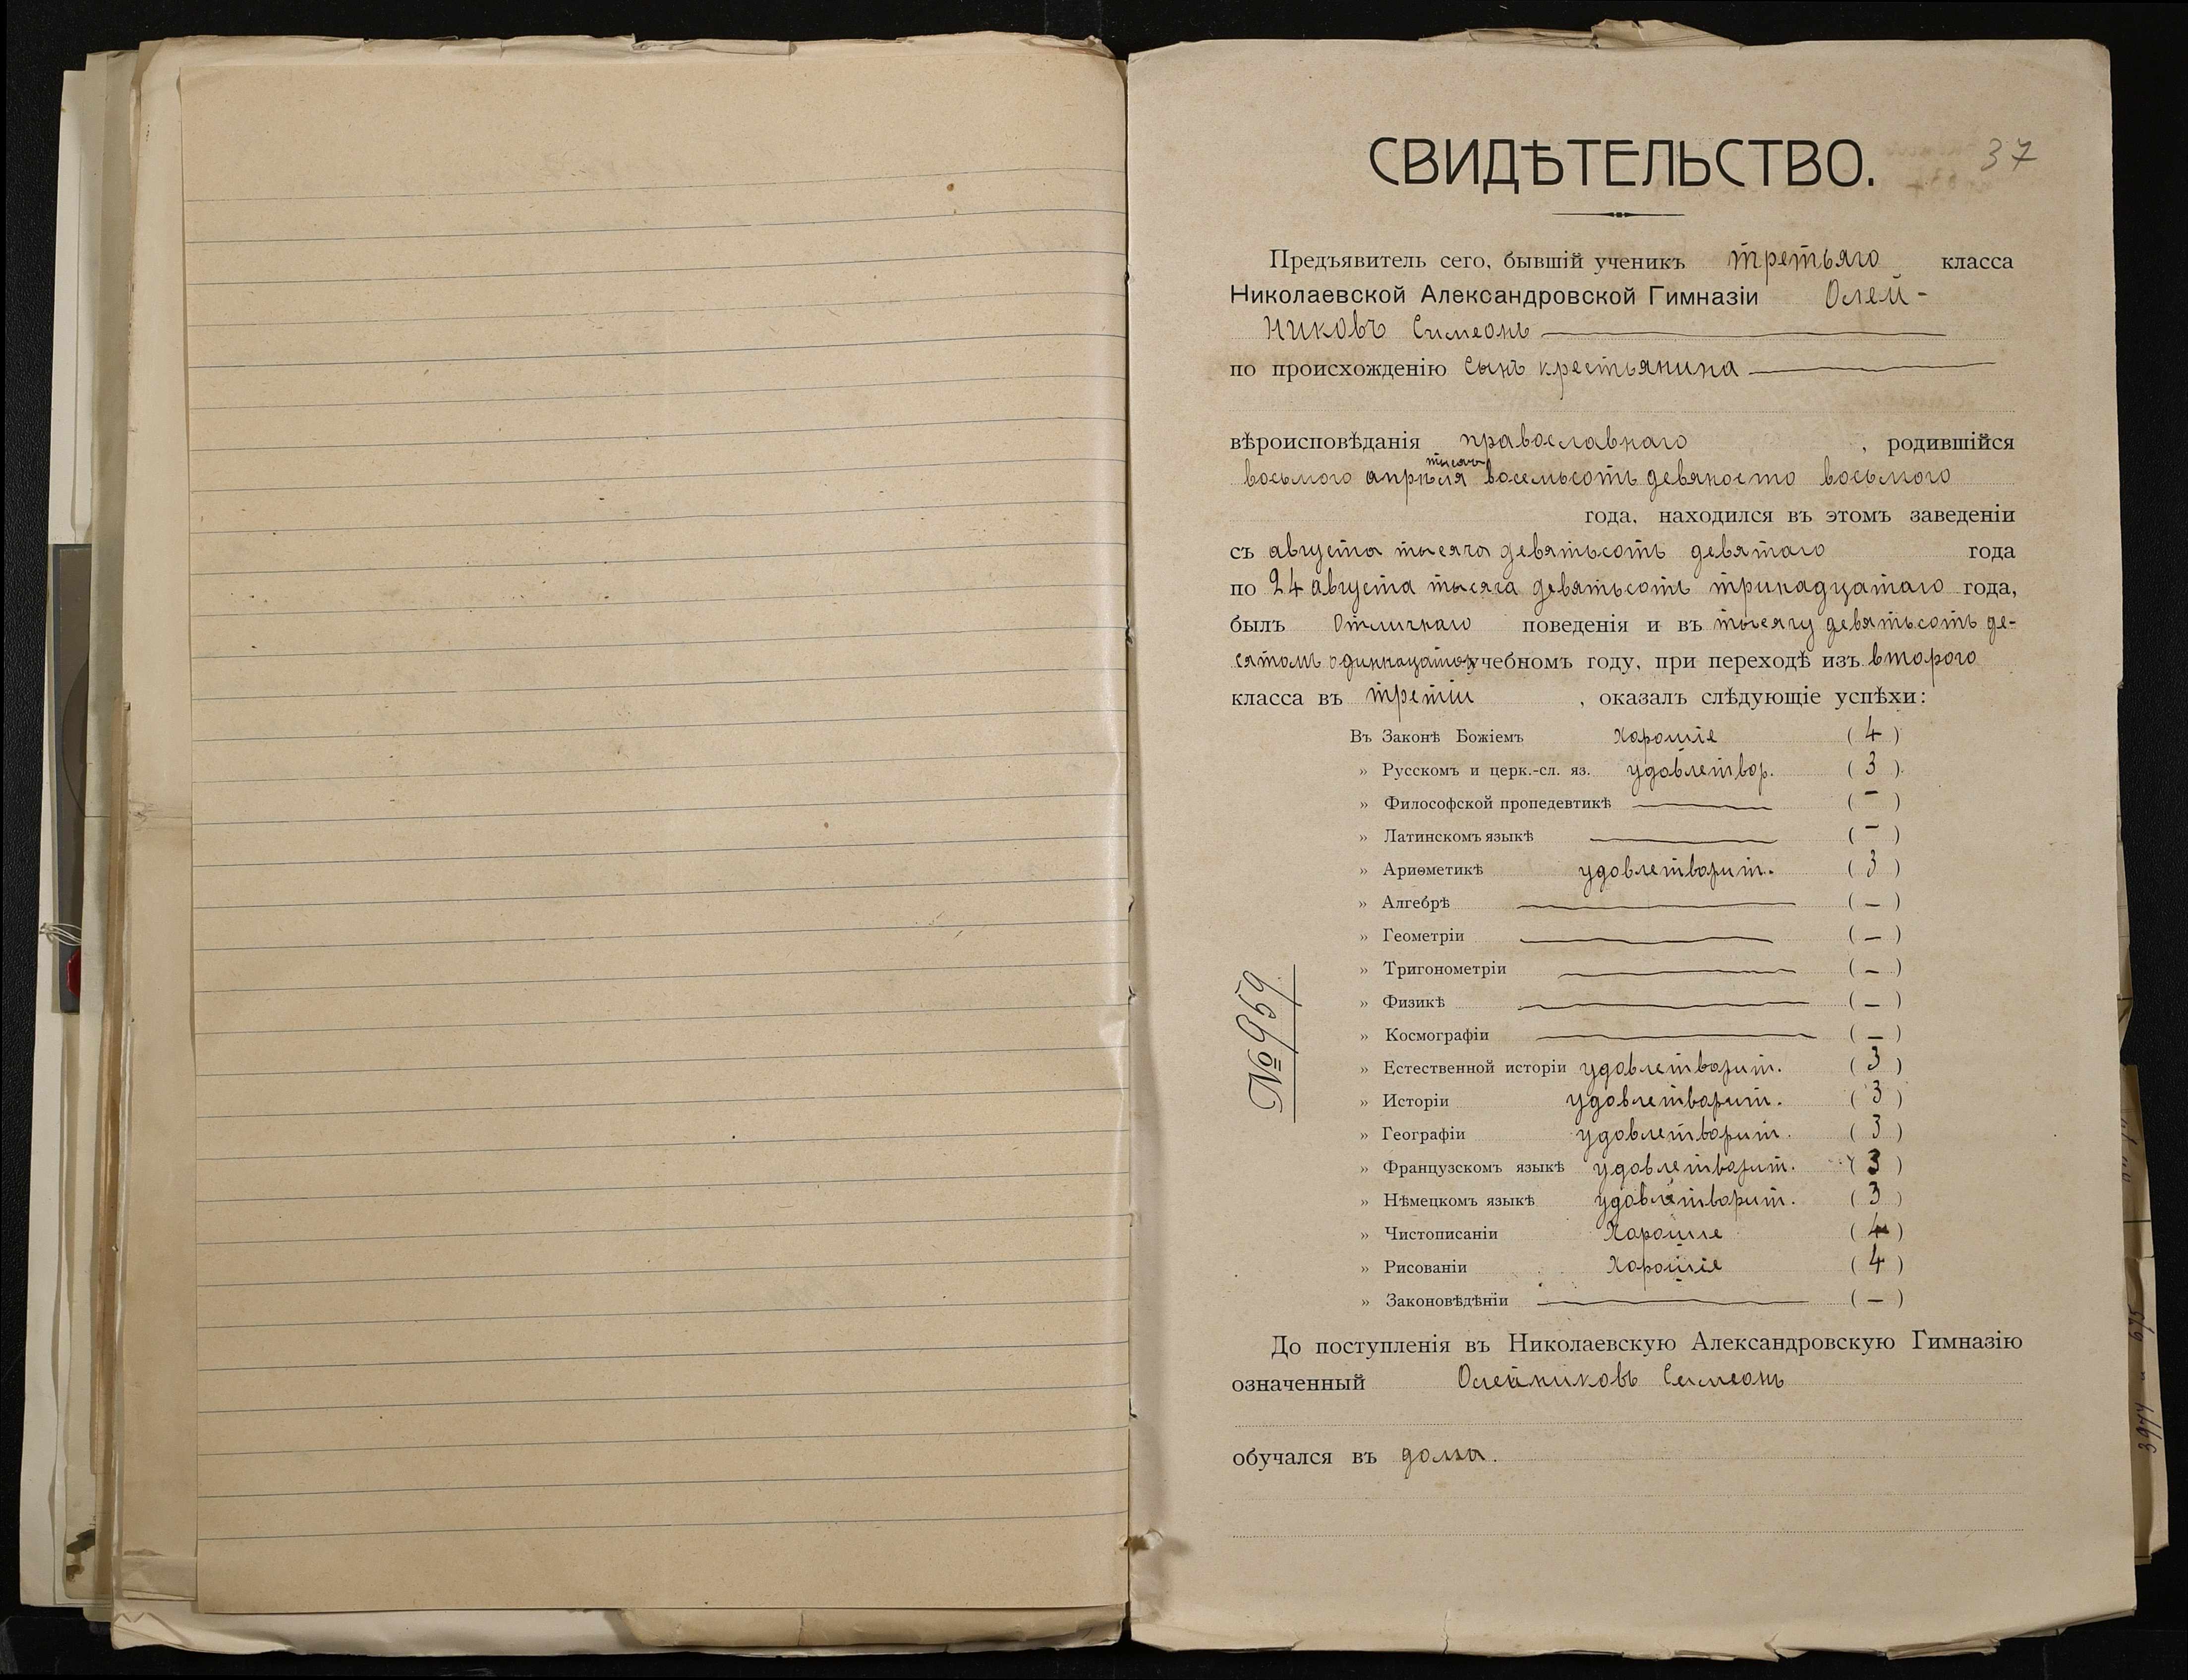 СВИДѢТЕЛЬСТВО.
37
Предъявитель сего, бывшій ученикъ третьяго класса
Николаевской Александровской Гимназіи Олей-
никовъ Симеонъ
по происхожденію сынъ крестьянина
вѣроисповѣданія православнаго, родившійся
тысяч
восьмого апрѣля восемьсотъ девяносто восьмого
года, находился въ этомъ заведеніи
съ августа тысяча девятьсотъ девятаго года
по 24 августа тысяча девятьсотъ тринадцатаго года,
былъ отличнаго поведенія и въ тысячу девятьсотъ де-
сятомъ одиннадцатом учебномъ году, при переходѣ изъ второго
класса въ третій, оказалъ слѣдующіе успѣхи:
Въ Законѣ Божіемъ хорошіе (4)
» Русскомъ и церк.-сл. яз. удовлетвор. (3)
» Философской пропедевтикѣ — (—)
» Латинскомъ языкѣ — (—)
» Ариѳметикѣ удовлетворит. (3)
» Алгебрѣ — (—)
» Геометріи — (—)
» Тригонометріи — (—)
» Физикѣ — (—)
» Космографіи — (—)
» Естественной исторіи удовлетворит. (3)
» Исторіи удовлетворит. (3)
» Географіи удовлетворит. (3)
» Французскомъ языкѣ удовлетворит. (3)
» Нѣмецкомъ языкѣ удовлетворит. (3)
» Чистописаніи хорошіе (4)
» Рисованіи хорошіе (4)
» Законовѣдѣніи — (—)
№ 959
До поступленія въ Николаевскую Александровскую Гимназію
означенный Олейниковъ Симеонъ
обучался въ дома.